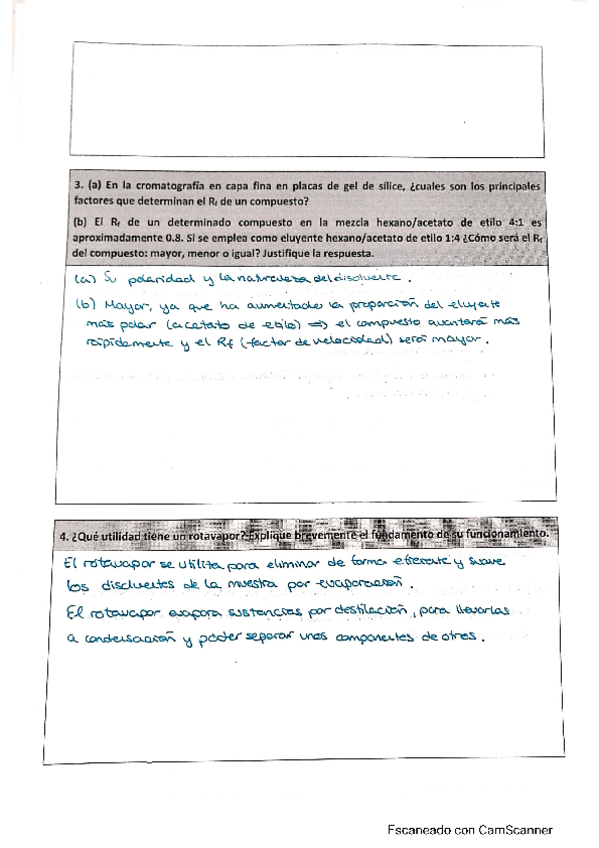 3. (a) En la cromatografía en capa fina en placas de gel de sílice, ¿cuales son los principales
factores que determinan el Rf de un compuesto?
(b) El Rf de un determinado compuesto en la mezcla hexano/acetato de etilo 4:1 es
aproximadamente 0.8. Si se emplea como eluyente hexano/acetato de etilo 1:4 ¿Cómo será el Rf
del compuesto: mayor, menor o igual? Justifique la respuesta.
(a) Su polaridad y la naturaleza del disolvente.
(b) Mayor, ya que ha aumentado la proporción del eluyente
más polar (acetato de etilo) => el compuesto avanzará más
rápidamente y el Rf (factor de velocidad) será mayor.
4. ¿Qué utilidad tiene un rotavapor? Explique brevemente el fundamento de su funcionamiento.
El rotavapor se utiliza para eliminar de forma eficiente y suave
los disolventes de la muestra por evaporación.
El rotavapor evapora sustancias por destilación, para llevarlas
a condensación y poder separar unos componentes de otros.
Escaneado con CamScanner